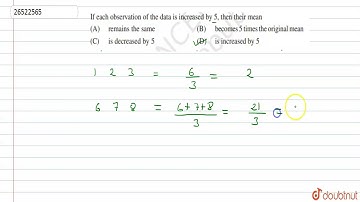 26522565
If each observation of the data is increased by 5, then their mean
(A) remains the same (B) becomes 5 times the original mean
(C) is decreased by 5 (D) is increased by 5
1 2 3 = 6/3 = 2
6 7 8 = 6+7+8/3 = 21/3
doubtnut